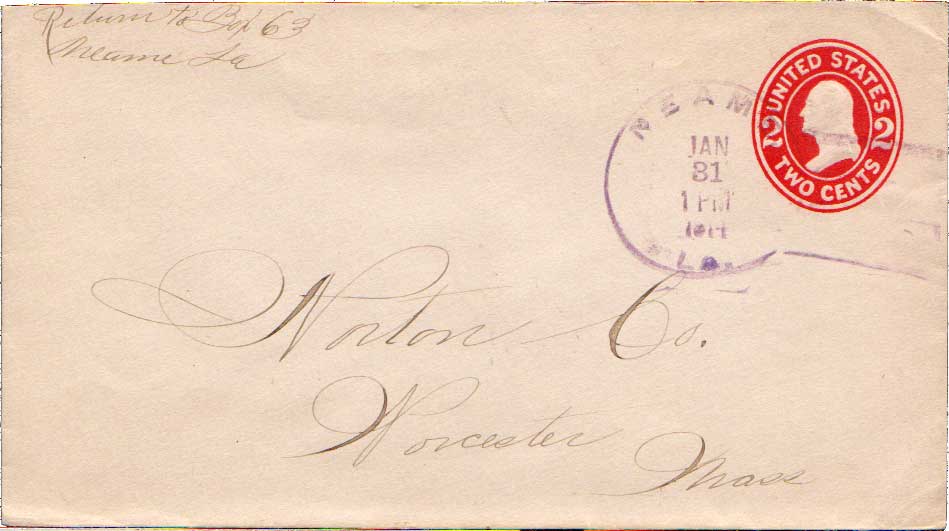 Return to Box 63
Neame La
UNITED STATES
2 2
TWO CENTS
NEAM
JAN
31
1 PM
LA.
Norton Co.
Worcester
Mass